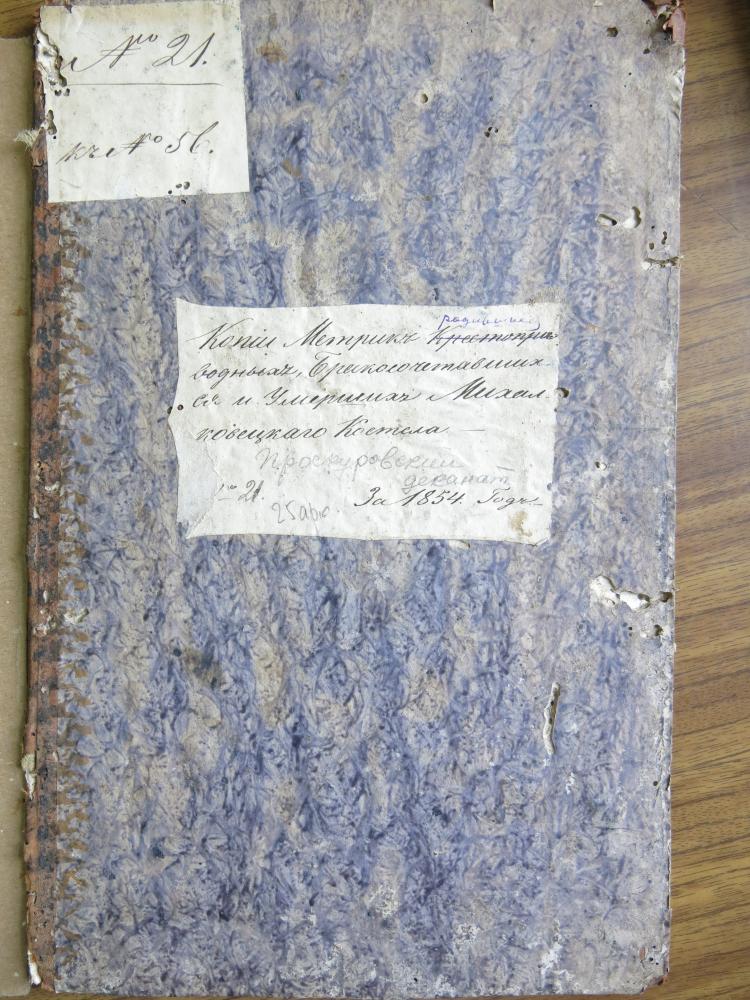 № 21.
къ № 56.
родившихся
Копіи Метрикъ Крестопри-
водныхъ, Бракосочетавших-
ся и Умершихъ Михал-
ковецкаго Костела
Проскуровский
деканат
№ 21.
За 1854 Годъ